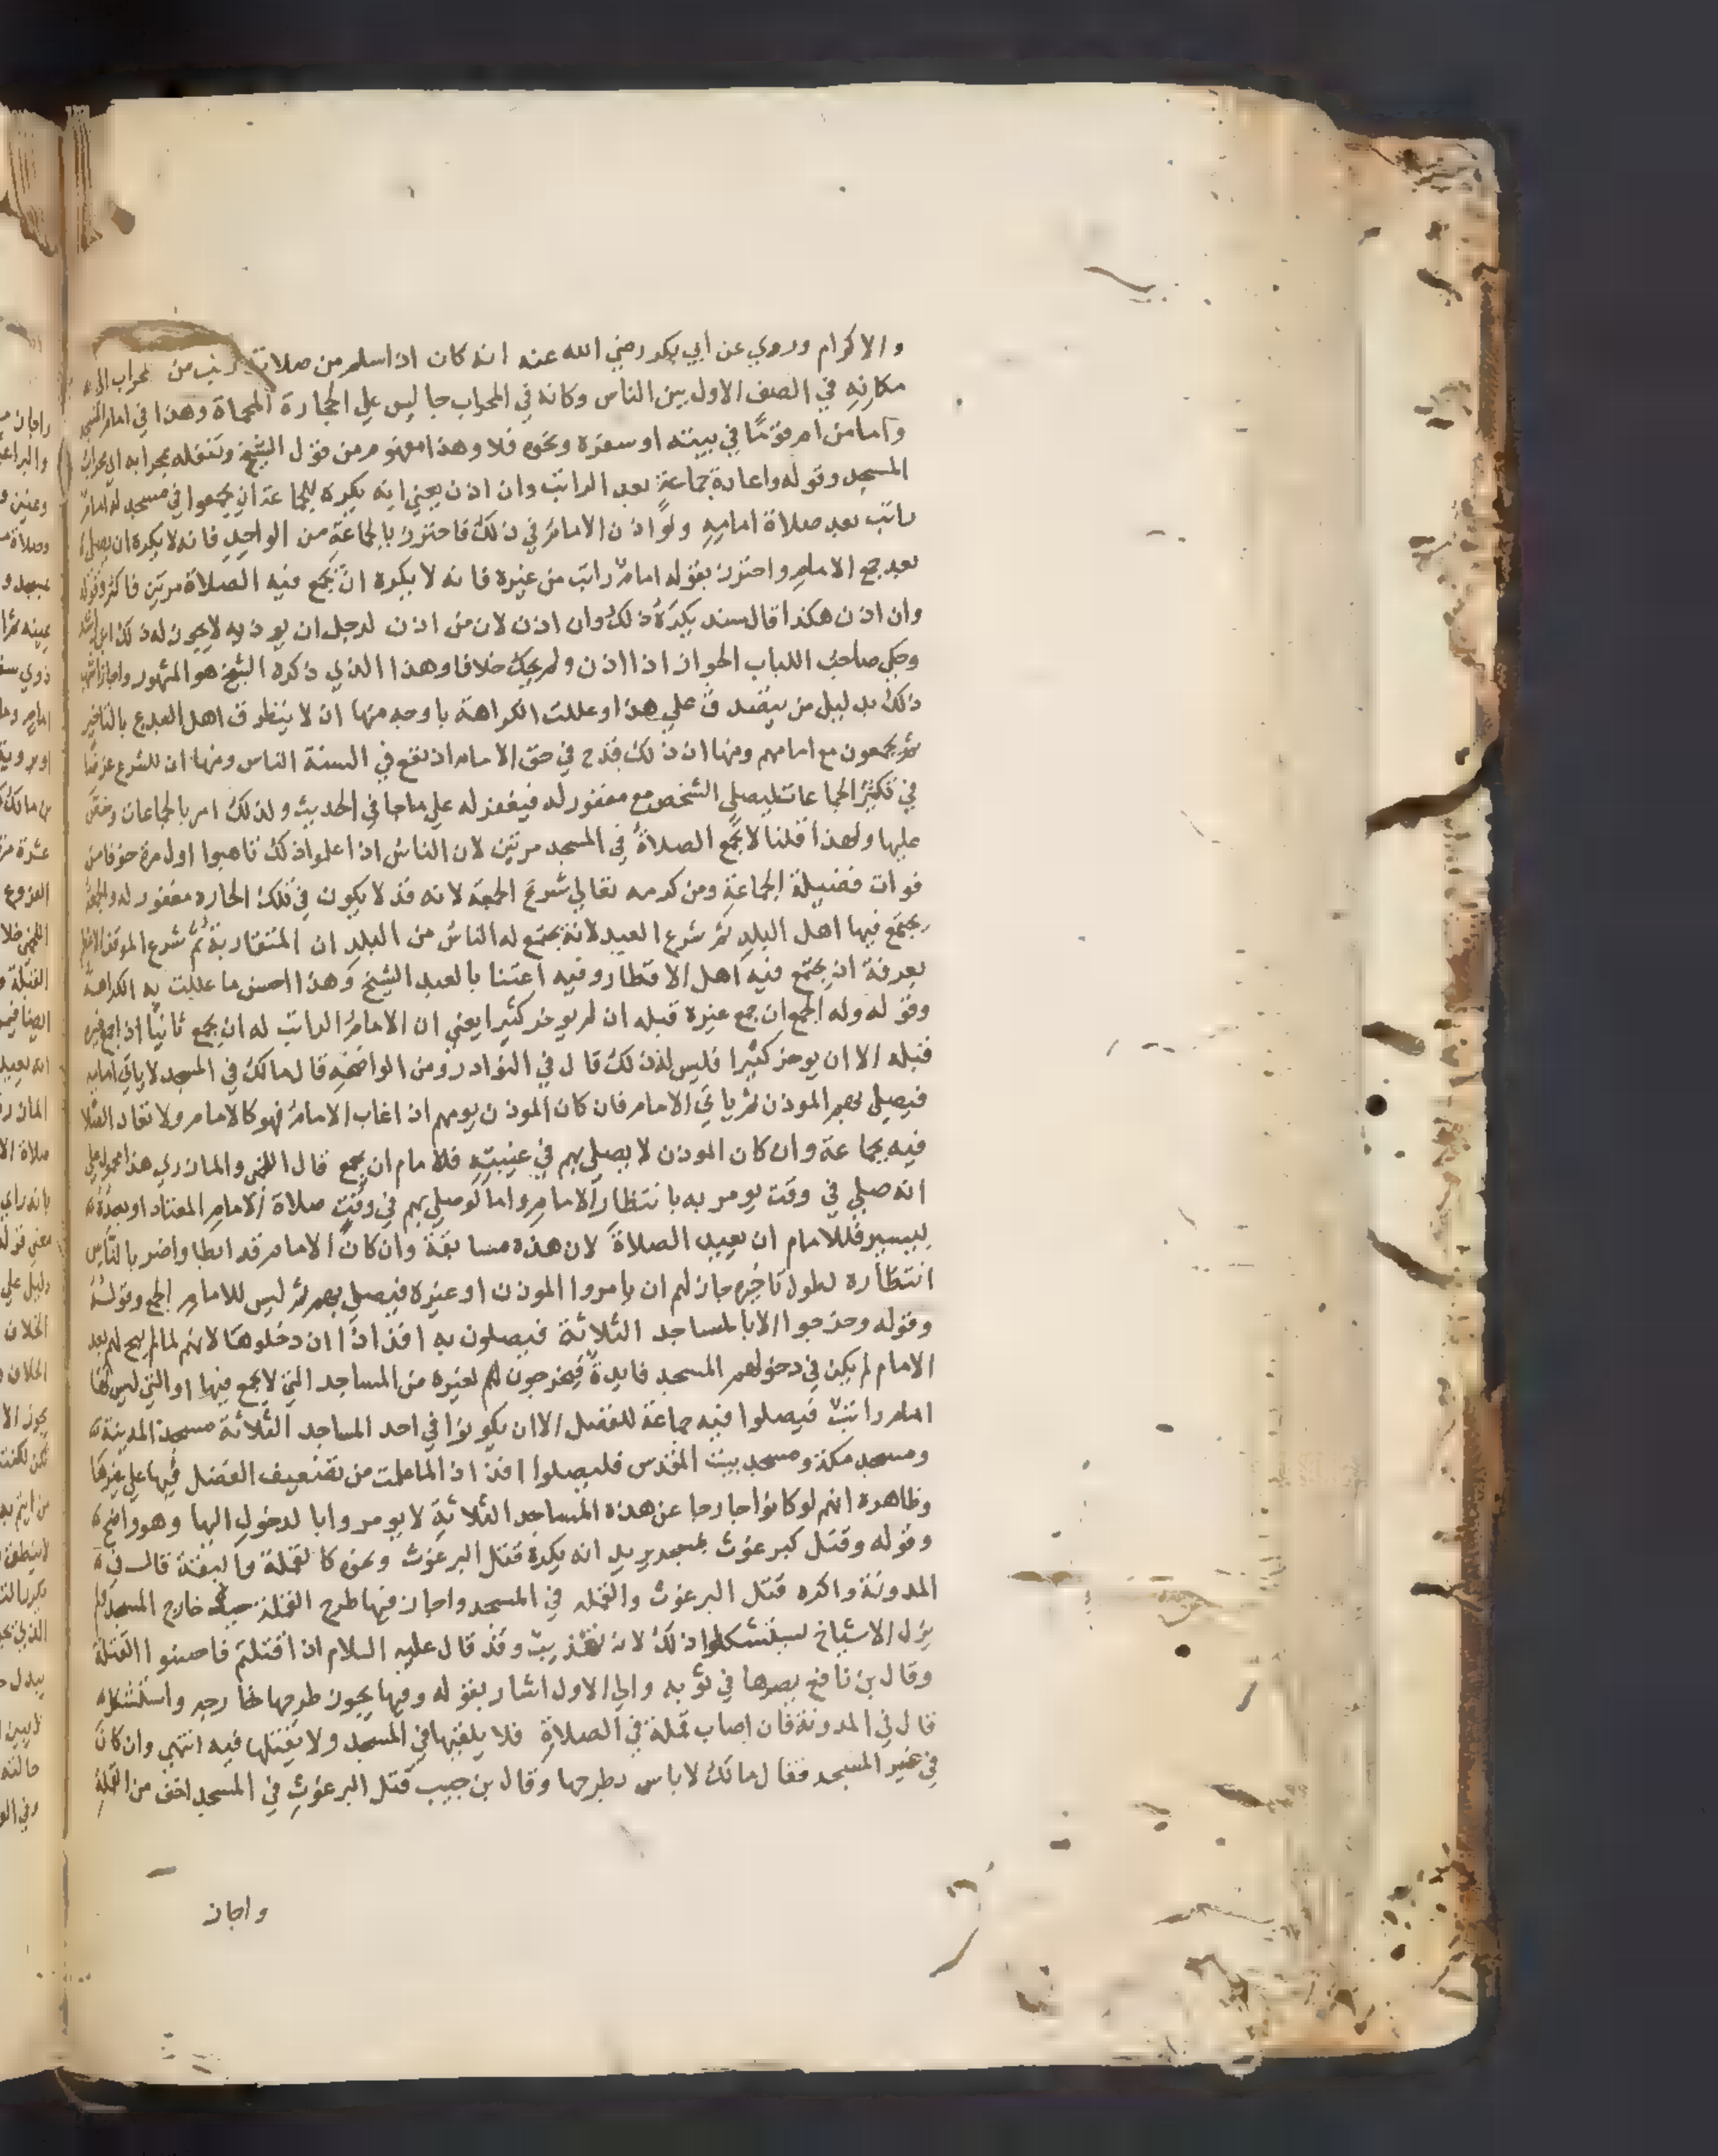 والاكرام وروي عن ابي بكر رضي الله عنه انه كان اذا سلم من صلاته من محراب الي
مكانه في الصف الاول بين الناس وكانه في المحراب جالس علي الحجارة المحماة وهذا في امام المسجد
واما من ام قوما في بيته او سفره ونحوه فلا وهذا مفهوم من قول الشيخ وتنفله بمحرابه اي محراب
المسجد وقوله واعادة جماعة بعد الراتب وان اذن يعني انه يكره للجماعة ان يجمعوا في مسجد له امام
راتب بعد صلاة امامه ولو اذن الامام في ذلك فاحترز بالجماعة من الواحد فانه لا يكره ان يصلي
بعد جمع الامام واحترز بقوله امام راتب من غيره فانه لا يكره ان تجمع فيه الصلاة مرتين فاكثر وقوله
وان اذن هكذا قال سند يكره ذلك وان اذن لان من اذن لرجل ان يوذيه لا يجوز له ذلك ابن رشد
وحكي صاحب اللباب الجواز اذا اذن ولم يحك خلافا وهذا الذي ذكره الشيخ هو المشهور واجاز اشهب
ذلك بدليل من يتصدق علي هذا وعللت الكراهة باوجه منها ان لا يتطرق اهل البدع بالتاخير
ثم يجمعون مع امامهم ومنها ان ذلك قدح في حق الامام اذ تقع في السنة الناس ومنها ان للشرع غرضا
في تكثير الجماعات ليصلي الشخص مع مغفور له فيغفر له علي ما جا في الحديث ولذلك امر بالجماعات وحض
عليها ولهذا قلنا لا تجمع الصلاة في المسجد مرتين لان الناس اذا علموا ذلك تاهبوا اول مرة خوفا من
فوات فضيلة الجماعة ومن كرمه تعالي شرع الجمعة لانه قد لا يكون في تلك الحاره مغفور له والجمعة
يجتمع فيها اهل البلد ثم شرع العيد لانه يجتمع له الناس من البلد ان المتقاربة ثم شرع الموقف الاعظم
بعرفة ان يجتمع فيه اهل الاقطار وفيه اعتنا بالعبد الشيخ وهذا احسن ما عللت به الكراهة
وقوله وله الجمع ان جمع غيره قبله ان لم يوخر كثيرا يعني ان الامام الراتب له ان يجمع ثانيا اذا جمع غيره
قبله الا ان يوخر كثيرا فليس له ذلك قال في النوادر ومن الواضحة قال مالك في المسجد لا ياتي امامه
فيصلي بهم الموذن ثم ياتي الامام فان كان الموذن يومهم اذا غاب الامام فهو كالامام ولا تعاد الصلاة
فيه بجماعة وان كان الموذن لا يصلي بهم في غيبته فللامام ان يجمع قال اللخمي والمازري هذا محمول علي
انه صلي في وقت يومر به بانتظار الامام واما لو صلي بهم في وقت صلاة الامام المعتاد او بعده
بيسير فللامام ان يعيد الصلاة لان هذه مسابقة وان كان الامام قد ابطا واضر بالناس
انتظاره لطول تاخيره جاز لهم ان يامروا الموذن او غيره فيصلي بهم ثم ليس للامام الجمع وقوله
وقوله وخرجوا الا بالمساجد الثلاثة فيصلون به افذاذا ان دخلوها لانهم لما لم يبح لهم بعد
الامام لم يكن في دخولهم المسجد فايدة فيخرجون لهم لغيره من المساجد التي لا يجمع فيها او التي ليس لها
امام راتب فيصلوا فيه جماعة للفضل الا ان يكونوا في احد المساجد الثلاثة مسجد المدينة
ومسجد مكة ومسجد بيت المقدس فليصلوا افذاذا لما علمت من تضعيف الفضل فيها علي غيرها
وظاهره انهم لو كانوا خارجا عن هذه المساجد الثلاثة لا يومروا بالدخول اليها وهو واضح
وقوله وقتل كبرغوث بمسجد يريد انه يكره قتل البرغوث ونحوه كالقملة والبقة قال في
المدونة واكره قتل البرغوث والقمله في المسجد واجاز فيها طرح القملة حية خارج المسجد ولم
يزل الاشياخ يستشكلوا ذلك لانه تعذيب وقد قال عليه السلام اذا قتلتم فاحسنوا القتلة
وقال بن نافع يصرها في ثوبه والي الاول اشار بقوله وفيها يجوز طرحها خارجه واستشكل
قال في المدونة فان اصاب قملة في الصلاة فلا يلقيها في المسجد ولا يقتلها فيه انتهي وان كان
في غير المسجد فقال مالك لا باس بطرحها وقال بن حبيب قتل البرغوث في المسجد اخف من القملة
واجاز